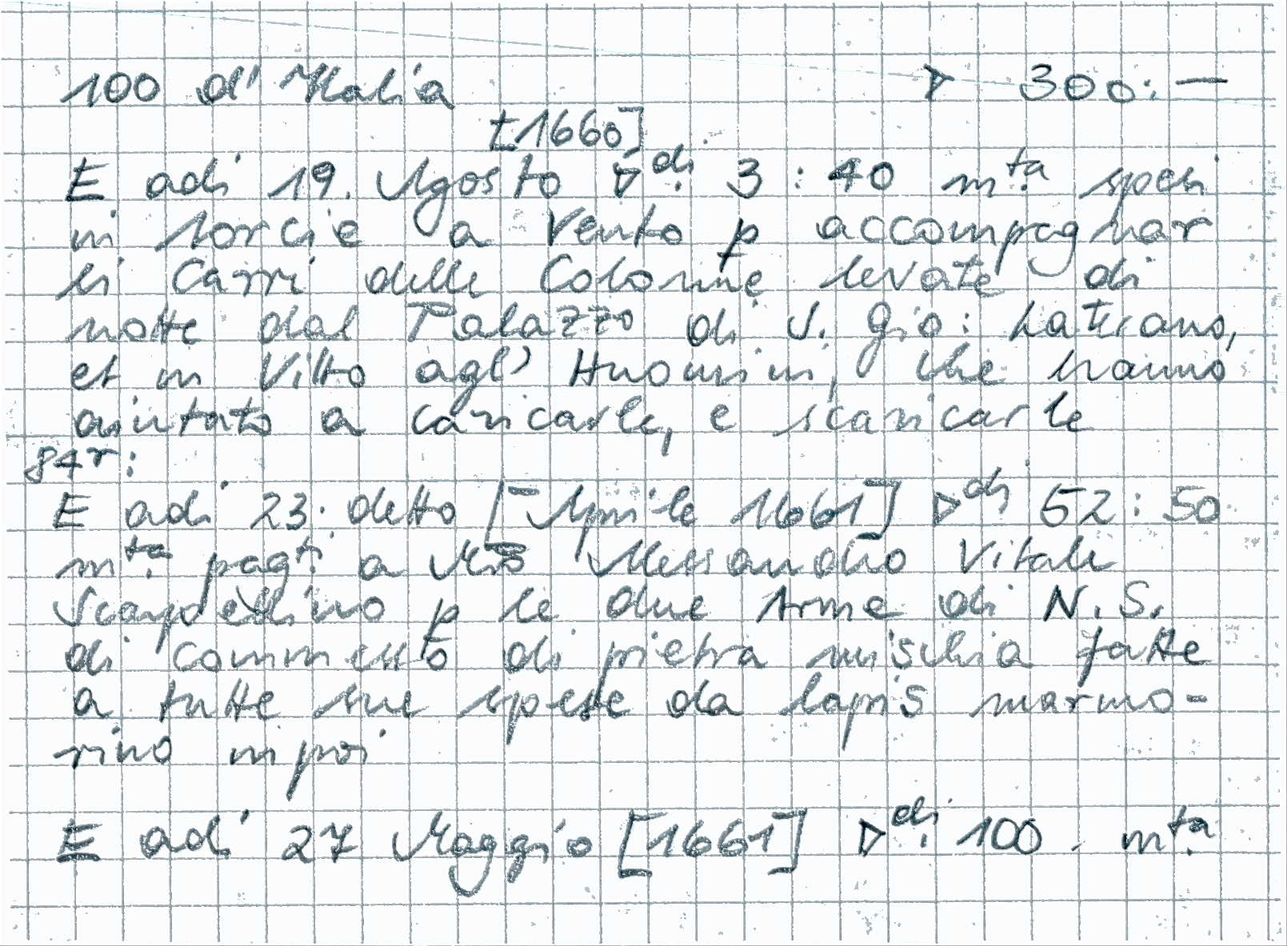 100 d'Italia ▽ 300: —
[1660]
E adi 19. Agosto ▽di 3 : 40 mta spesi
in torcie a Vento p accompagnar
li Carri delle Colonne levate di
notte dal Palazzo di S. Gio: Laterano,
et in Vitto agl' Huomini, che hanno
aiutato a caricarle, e scaricarle
84r:
E adi 23. detto [= Aprile 1661] ▽di 52 : 50
mta pagti a Mro Alessandro Vitale
Scarpellino p le due Arme di N. S.
di commesso di pietra mischia fatte
a tutte sue spese da lapis marmo-
rino in poi
E adi 27 Maggio [1661] ▽di 100. mta